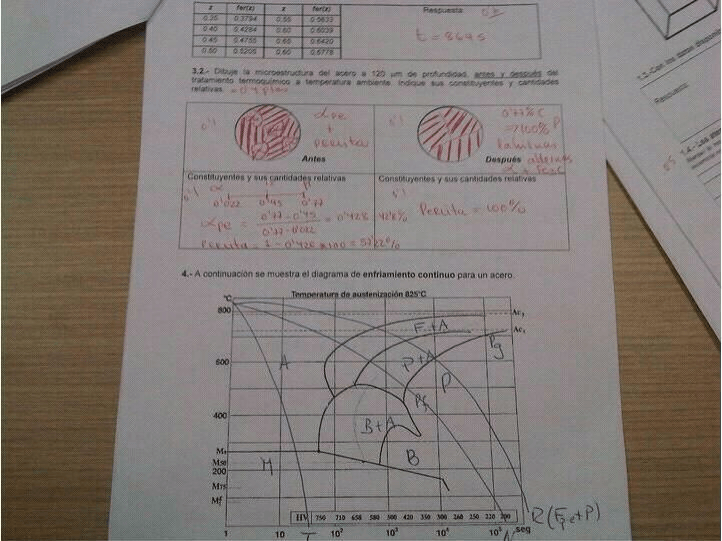 z fer(z) z fer(z)
0.35 0.3794 0.55 0.5633
0.40 0.4284 0.60 0.6039
0.45 0.4755 0.65 0.6420
0.50 0.5205 0.6778
Respuesta:
t = 8645
3.2.- Dibuje la microestructura del acero a 120 µm de profundidad, antes y después del
tratamiento termoquímico a temperatura ambiente. Indique sus constituyentes y cantidades
relativas. = 0'4 ptos
0'1
αpe
+
Perlita
Antes
0'1
0'77% C
⇒ 100% P
láminas
Después
α + Fe3C
Constituyentes y sus cantidades relativas
Constituyentes y sus cantidades relativas
0'1
α
0'022 0'45 0'77
αpe = 0'77 - 0'45 / 0'77 - 0'022 = 0'428
Perlita = 1 - 0'428 × 100 =
0'1
Perlita = 100%
4.- A continuación se muestra el diagrama de enfriamiento continuo para un acero.
Temperatura de austenización 825°C
°C
800
Ac3
F + A
Ac1
Pg
600
A
P + A
P
Pf
400
B + A
Ms
B
M50
M
200
M75
Mf
R (Fpe + P)
HV 750 710 658 580 400 380 300 260 250 220 200
1 10 10² 10³ 10⁴ 10⁵ seg
T N
1.2.-Con los datos
Respuesta:
0'5
1.4.- Los